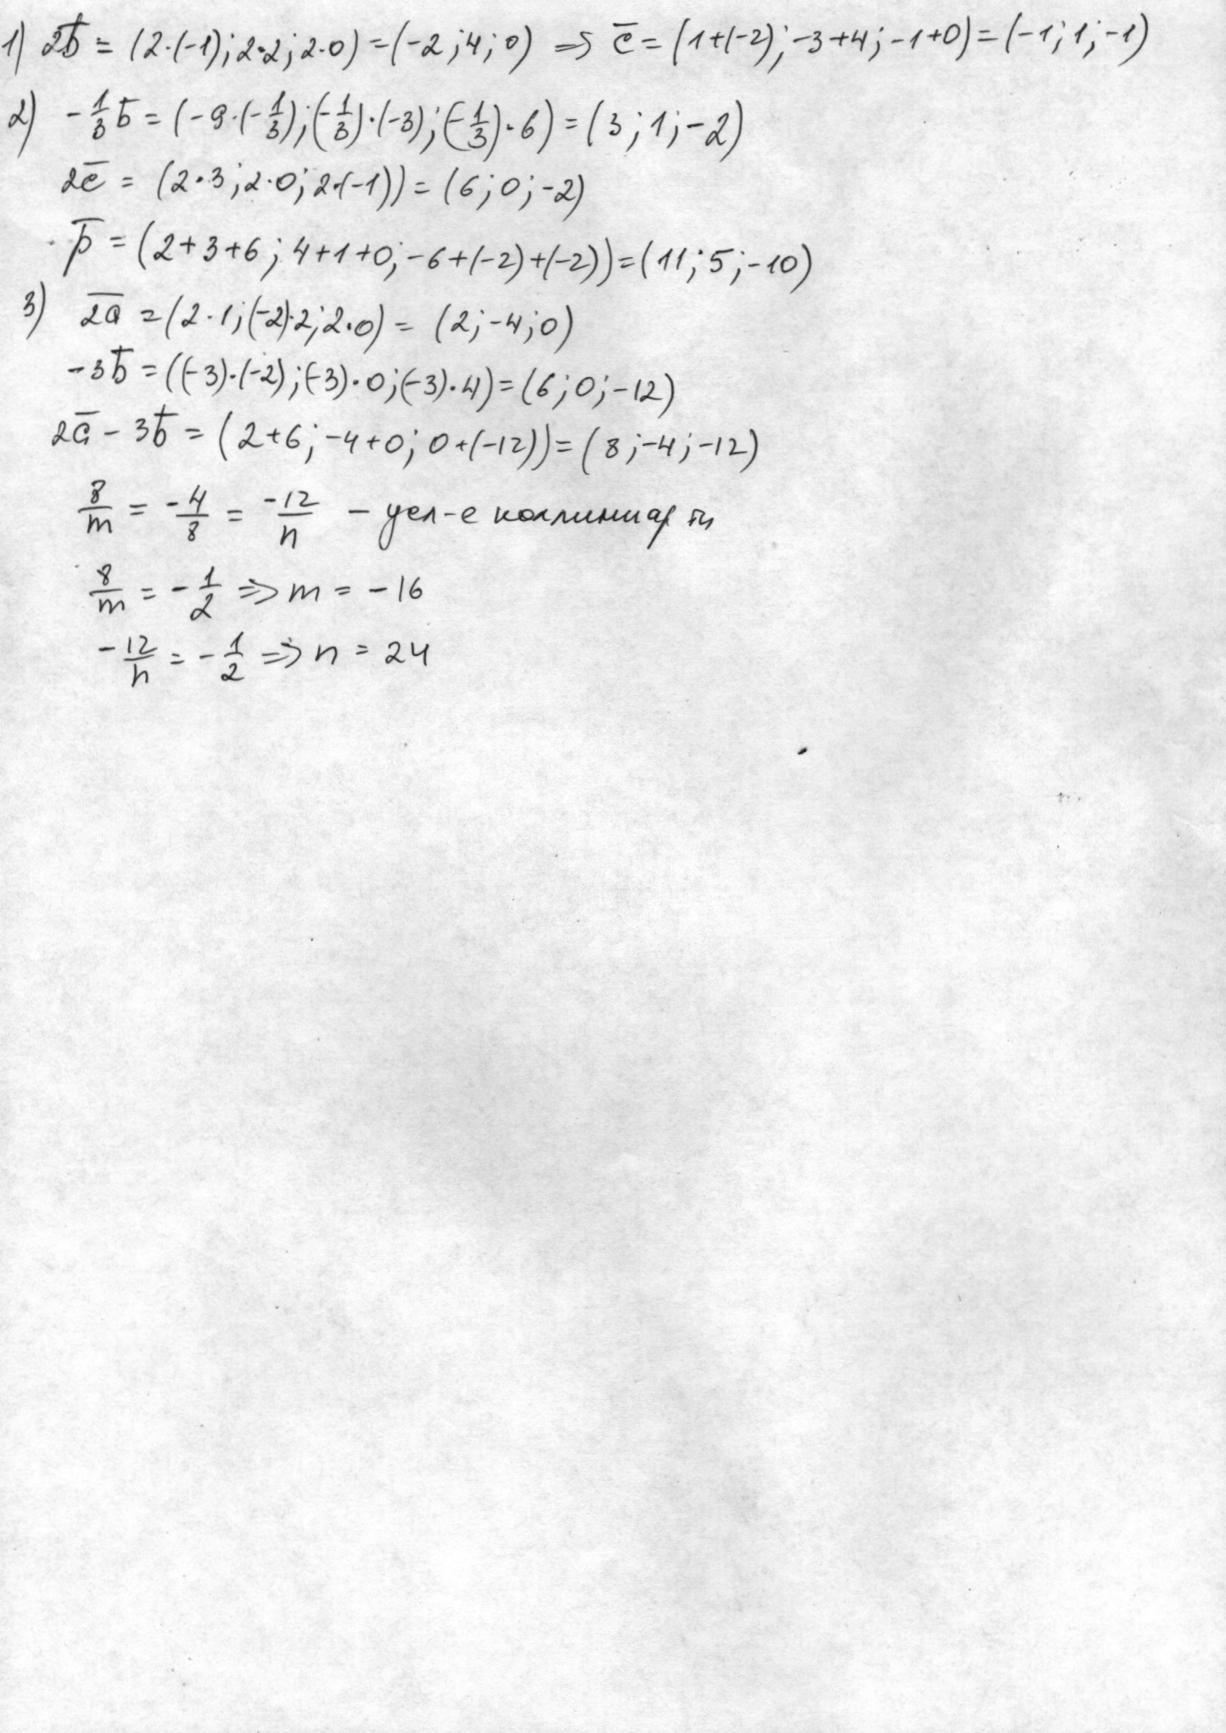 1) 2b̅ = (2·(-1); 2·2; 2·0) = (-2; 4; 0) => c̅ = (1+(-2); -3+4; -1+0) = (-1; 1; -1)
2) -1/3 b̅ = (-9·(-1/3); (-1/3)·(-3); (-1/3)·6) = (3; 1; -2)
2c̅ = (2·3; 2·0; 2·(-1)) = (6; 0; -2)
p̅ = (2+3+6; 4+1+0; -6+(-2)+(-2)) = (11; 5; -10)
3) 2a̅ = (2·1; (-2)·2; 2·0) = (2; -4; 0)
-3b̅ = ((-3)·(-2); (-3)·0; (-3)·4) = (6; 0; -12)
2a̅ - 3b̅ = (2+6; -4+0; 0+(-12)) = (8; -4; -12)
8/m = -4/8 = -12/n - усл-е коллиниар ти
8/m = -1/2 => m = -16
-12/n = -1/2 => n = 24